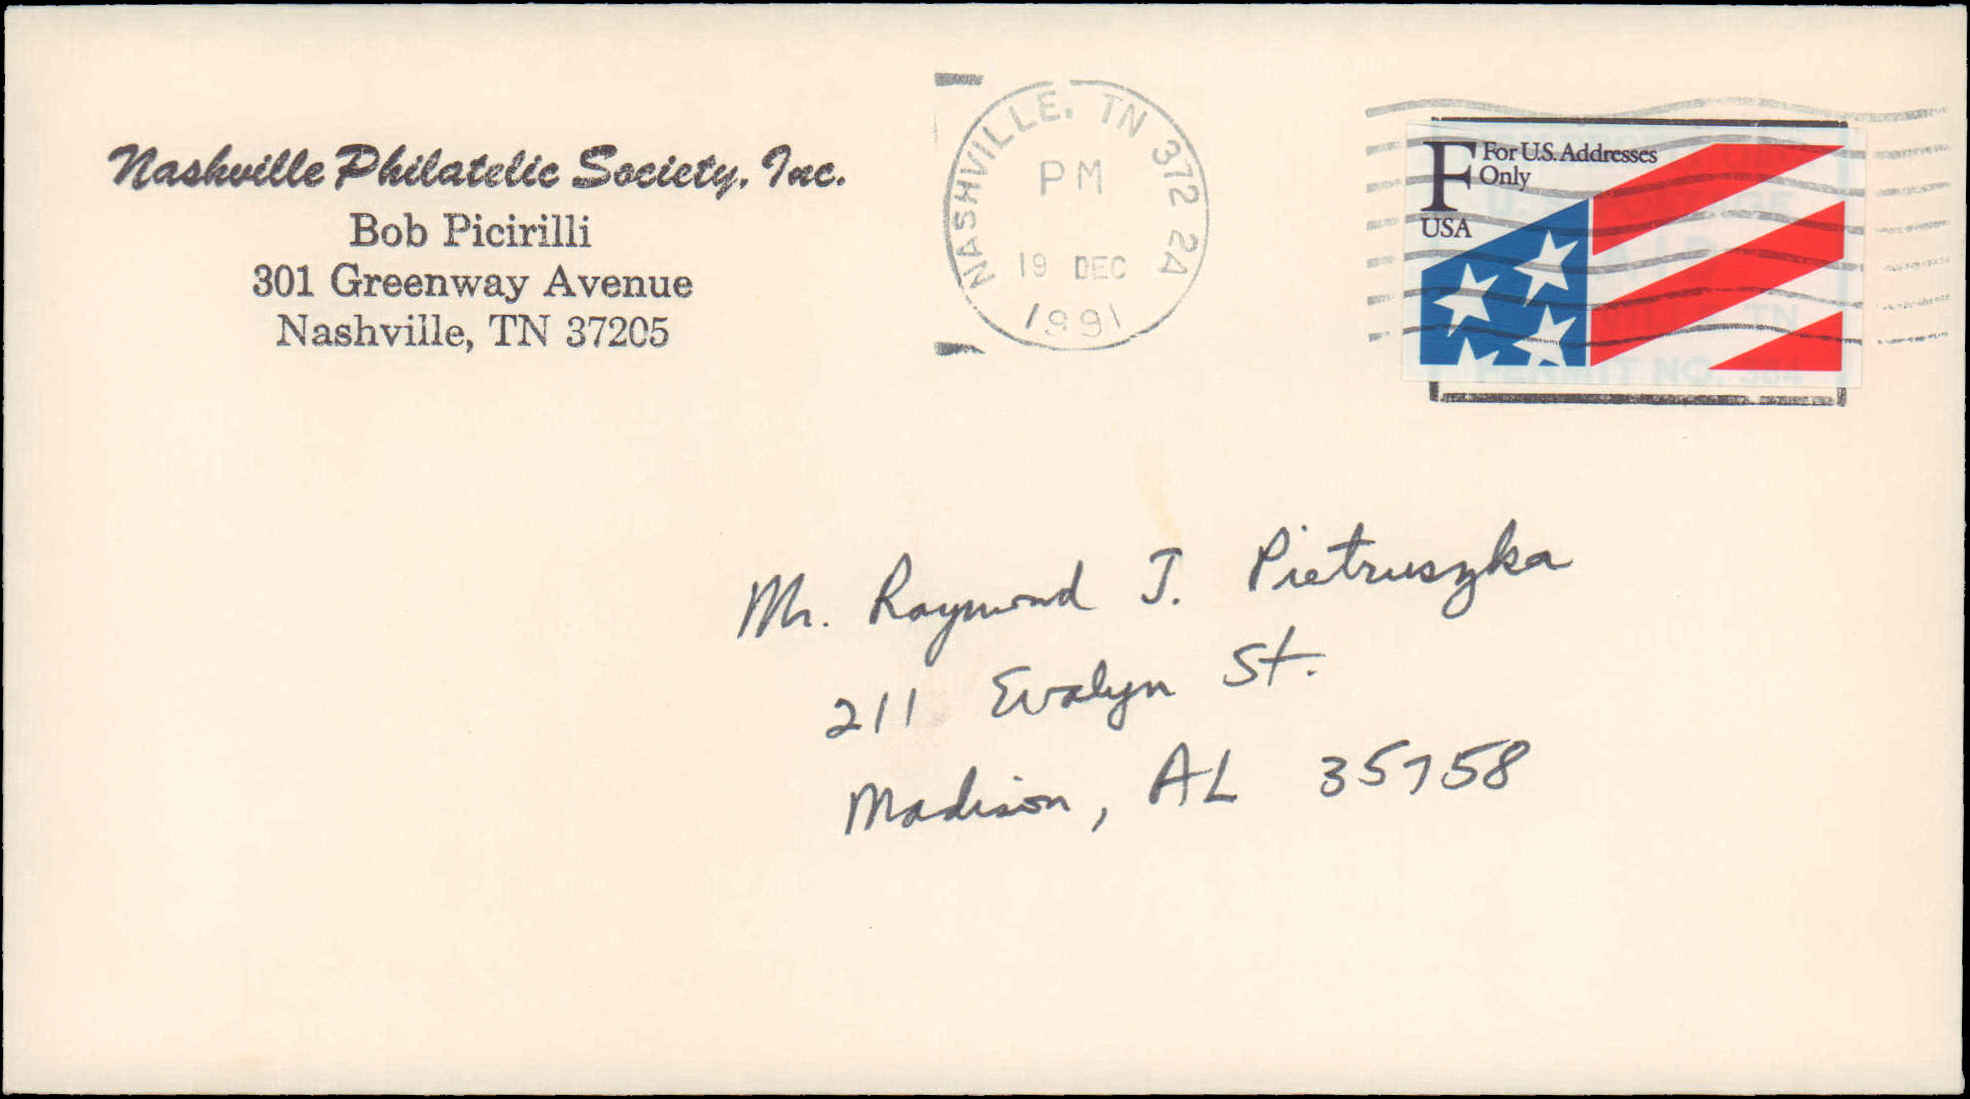 Nashville Philatelic Society, Inc.
Bob Picirilli
301 Greenway Avenue
Nashville, TN 37205
NASHVILLE, TN 372 2A
PM
19 DEC
1991
F For U.S. Addresses
Only
USA
PERMIT NO. 384
Mr. Raymond J. Pietruszka
211 Evalyn St.
Madison, AL 35758